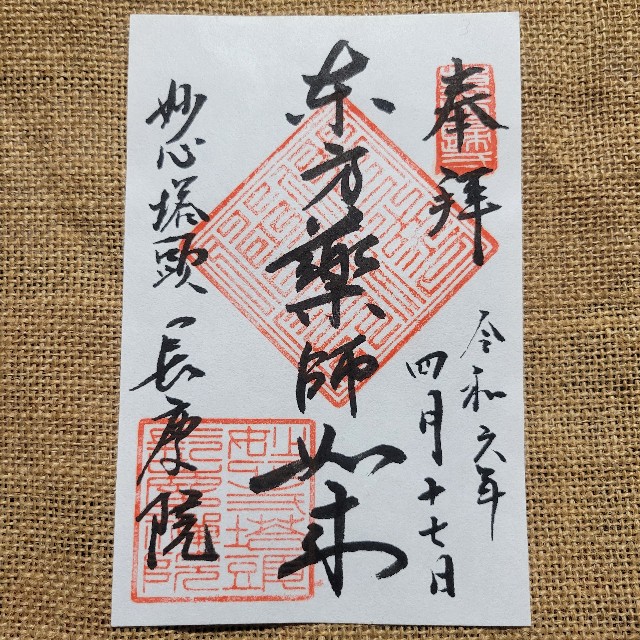 奉拝
令和六年
四月十七日
东方薬師如来
妙心塔頭 長慶院